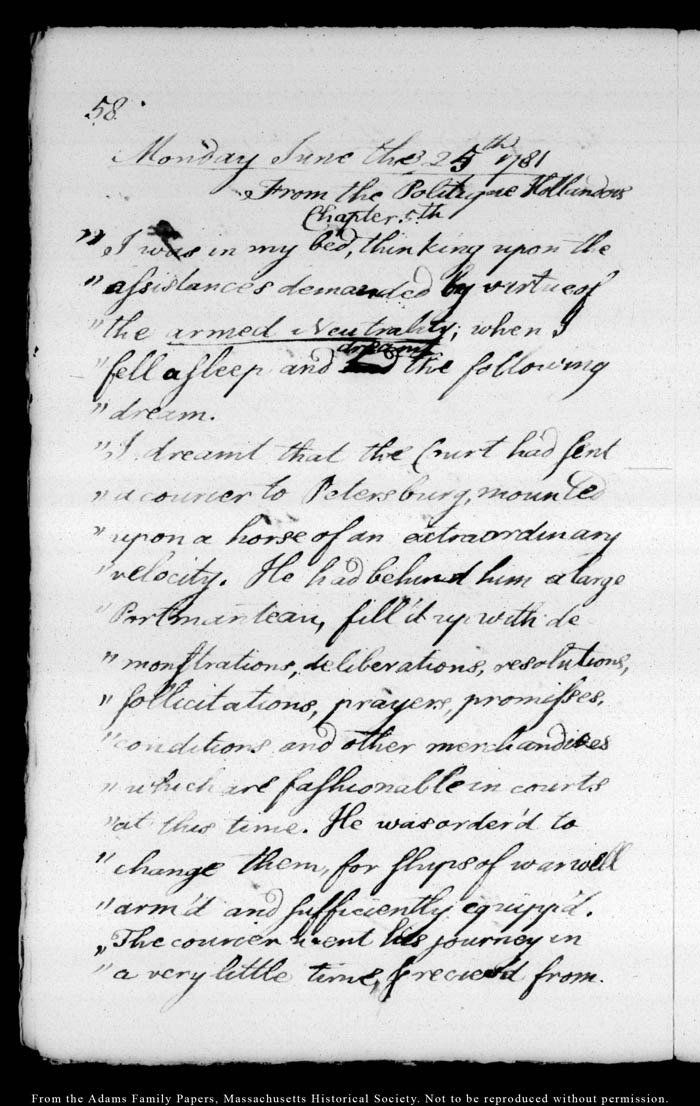 58.
Monday June the 25th 1781
From the Politique Hollandois
Chapter 5th
" I was in my bed, thinking upon the
" assistances demanded by virtue of
" the armed Neutrality; when I
dreamt
" fell asleep and the following
" dream.
" I dreamt that the Court had sent
" a courier to Petersburg, mounted
" upon a horse of an extraordinary
" velocity. He had behind him a large
" Portmanteau, fill'd up with de
" monstrations, deliberations, resolutions,
" sollicitations, prayers, promisses,
" conditions and other merchandises
" which are fashionable in courts
" at this time. He was order'd to
" change them, for ships of war well
" arm'd and sufficiently equipp'd.
" The courier went his journey in
" a very little time, & reciev'd from.
From the Adams Family Papers, Massachusetts Historical Society. Not to be reproduced without permission.